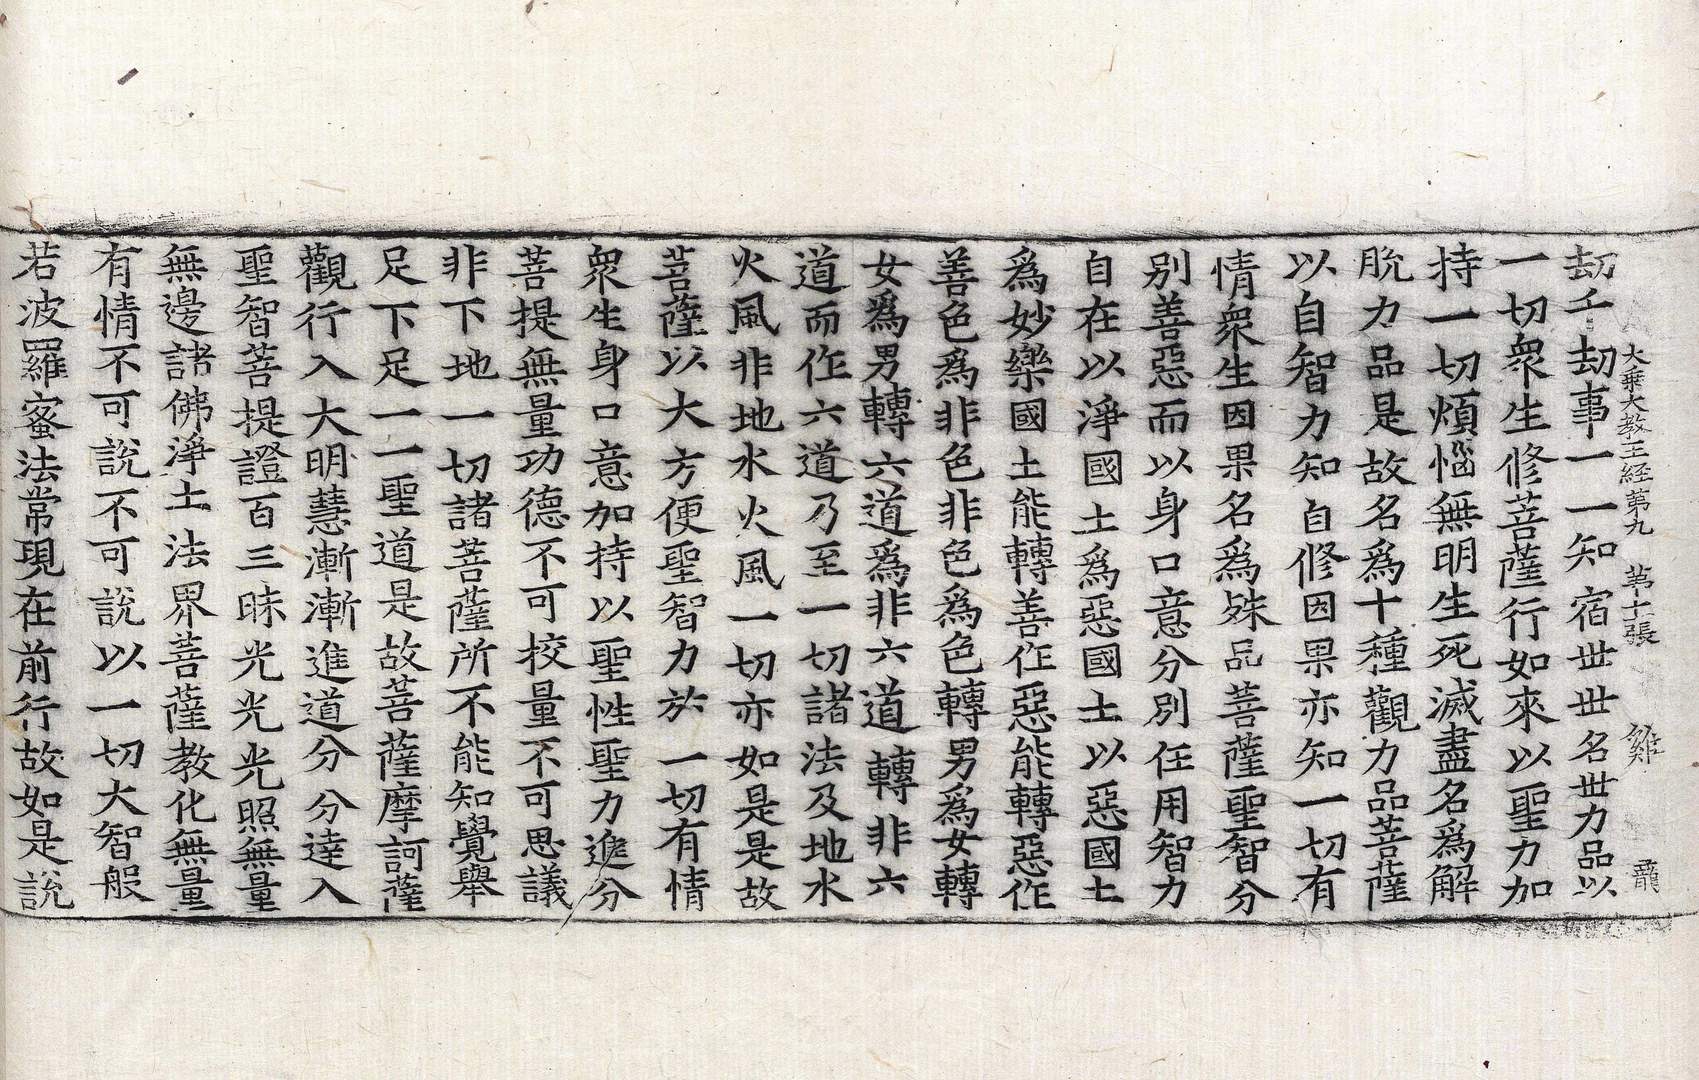 大乗大教王経第九　第十張　雞　龍
劫千劫事一一知宿世世名世力品以
一切衆生修菩薩行如來以聖力加
持一切煩惱無明生死滅盡名爲解
脫力品是故名爲十種觀力品菩薩
以自智力知自修因果亦知一切有
情衆生因果名爲殊品菩薩聖智分
別善惡而以身口意分別任用智力
自在以淨國土爲惡國土以惡國土
爲妙樂國土能轉善作惡能轉惡作
善色爲非色非色爲色轉男爲女轉
女爲男轉六道爲非六道轉非六
道而作六道乃至一切諸法及地水
火風非地水火風一切亦如是是故
菩薩以大方便聖智力於一切有情
衆生身口意加持以聖性聖力進分
菩提無量功德不可校量不可思議
非下地一切諸菩薩所不能知覺舉
足下足一一聖道是故菩薩摩訶薩
觀行入大明慧漸漸進道分分達入
聖智菩提證百三昧光光光照無量
無邊諸佛淨土法界菩薩教化無量
有情不可說不可說以一切大智般
若波羅蜜法常現在前行故如是說